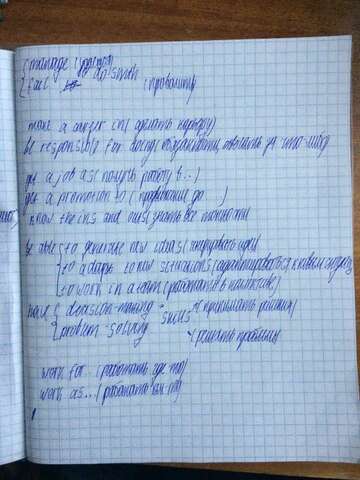 { manage (удаться)
{ fail to do smth (провалить)
make a career in (сделать карьеру)
be responsible for doing
get a job as (получить работу в...)
get a promotion to (продвижение до )
know the ins and outs (знать все тонкости
be able { to generate new ideas (генерировать идеи)
{ to adapt to new situations (адаптироваться к новым
{ to work in a team (работать в коллективе)
have { decision-making skills (принимать решения)
{ problem-solving (решать проблемы
work for (работать где-то)
work as... (работать кем-то)